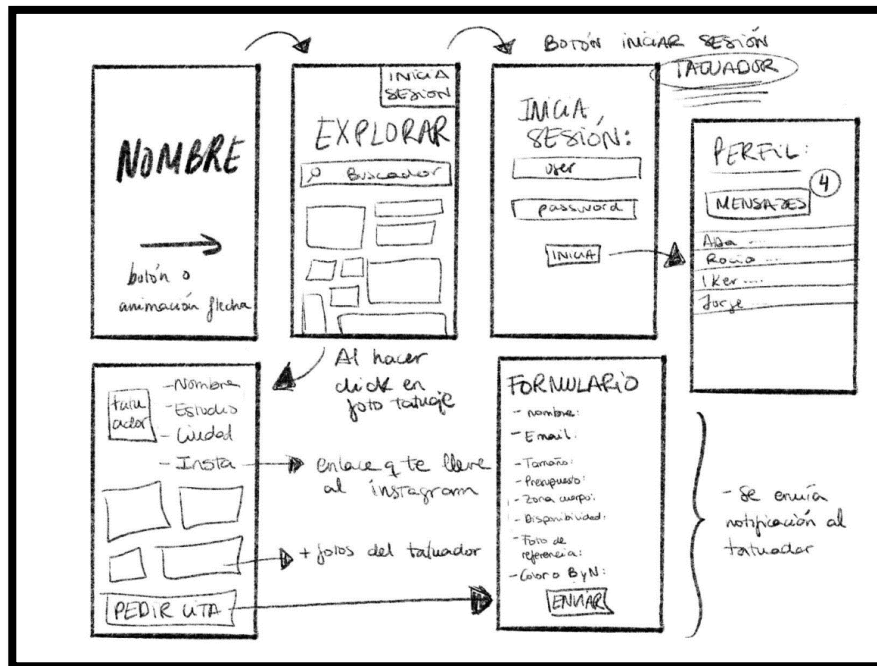 BOTÓN INICIAR SESIÓN
TATUADOR
NOMBRE
botón o
animación flecha
INICIA
SESION
EXPLORAR
Buscador
INICIA
SESIÓN:
user
password
INICIA
PERFIL:
MENSAJES
4
Ana ...
Rocio ...
Iker ....
Jorge ...
Al hacer
click en
foto tatuaje
tatu
ador
- Nombre
- Estudio
- Ciudad
- Insta
enlace q te lleve
al instagram
+ fotos del tatuador
PEDIR CITA
FORMULARIO
- nombre:
- Email:
- Tamaño:
- Presupuesto:
- Zona cuerpo:
- Disponibilidad:
- Foto de
referencia:
- Color o ByN:
ENVIAR
- Se envía
notificación al
tatuador